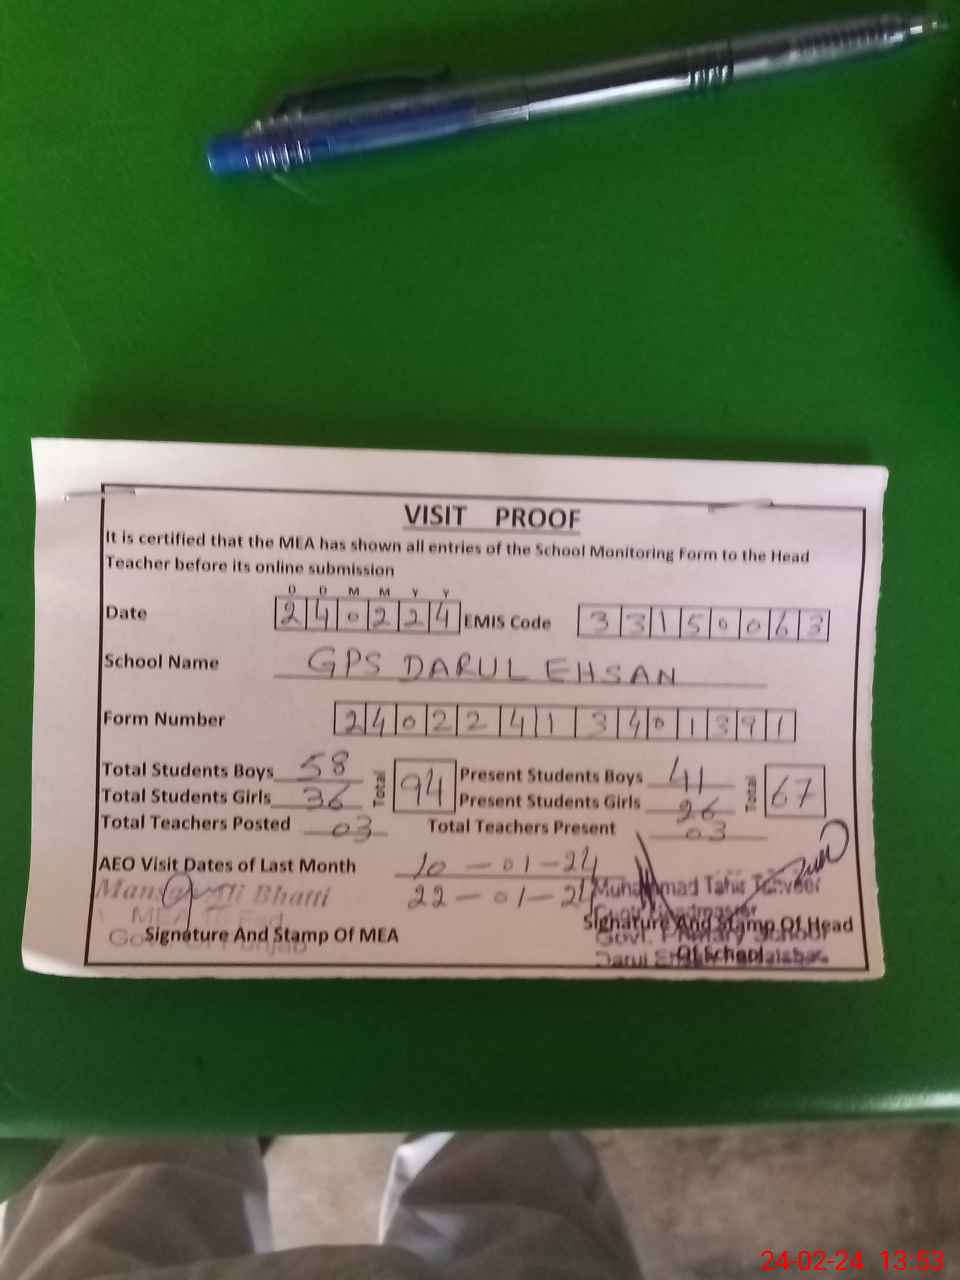 VISIT PROOF
It is certified that the MEA has shown all entries of the School Monitoring Form to the Head
Teacher before its online submission
D D M M Y Y
Date 2 4 0 2 2 4 EMIS Code 3 3 1 5 0 0 6 3
School Name GPS DARUL EHSAN
Form Number 2 4 0 2 2 4 1 3 4 0 1 3 9 1
Total Students Boys 58 Total 94 Present Students Boys 41 Total 67
Total Students Girls 36 Present Students Girls 26
Total Teachers Posted 03 Total Teachers Present 03
AEO Visit Dates of Last Month 10-01-24
22-01-24
Ali Bhatti Muhammad Tahir Tanveer
MEA
Headmaster
Signature And Stamp Of MEA Signature And Stamp Of Head
Govt. Primary School
Of School
Darul
24-02-24 13:53